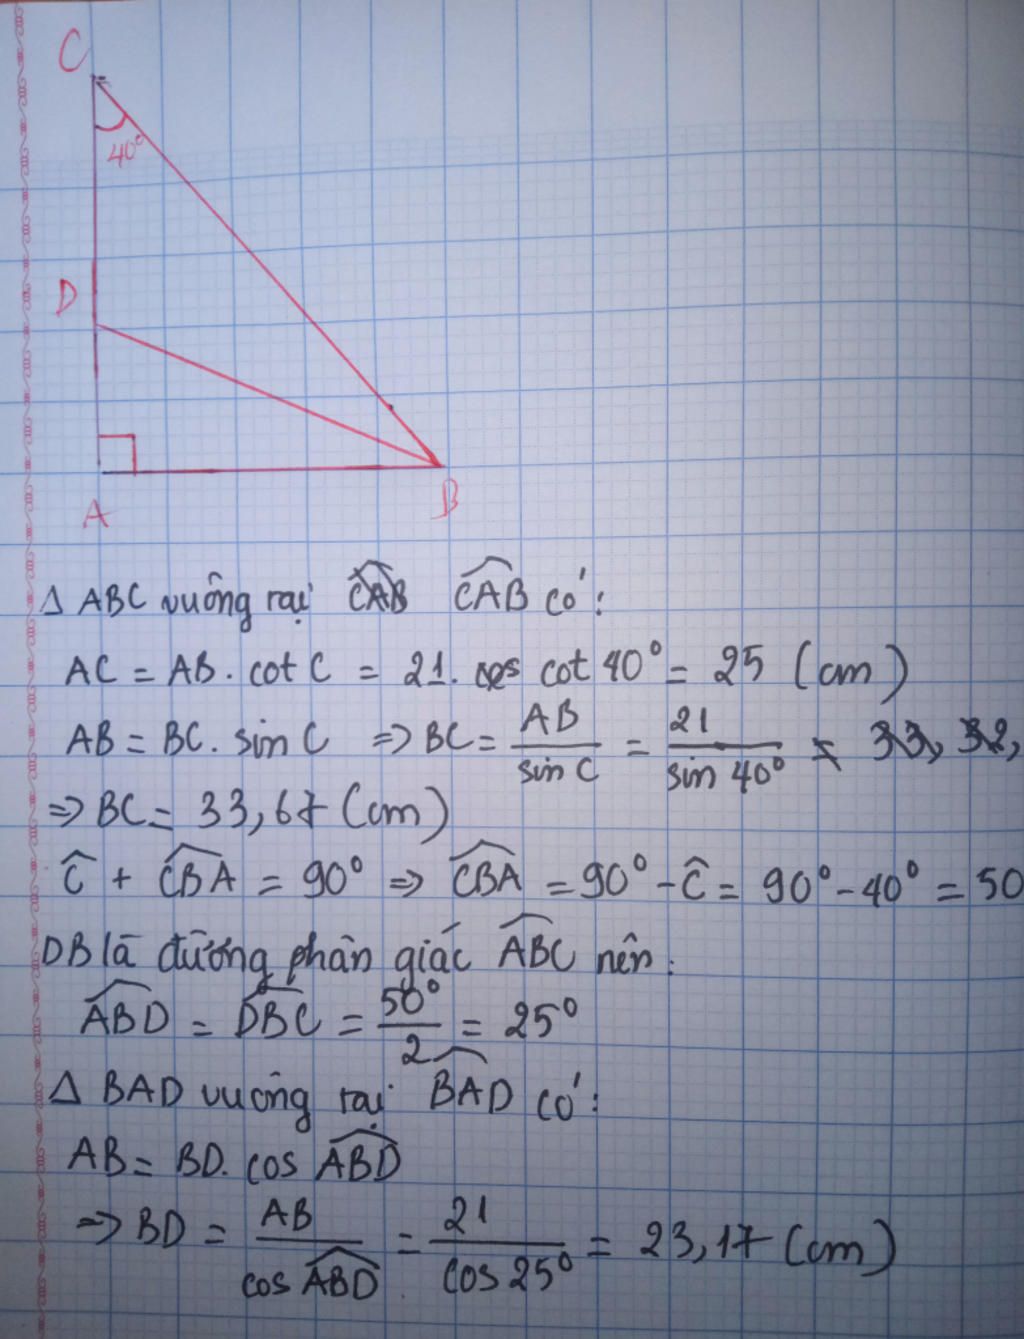 C
40°
D
A
B
Δ ABC vuông tại CAB CAB có:
AC = AB . cot C = 21. cos cot 40° = 25 (cm)
AB = BC. sin C => BC = AB / sin C = 21 / sin 40° = 33, 32,
=> BC = 33,67 (cm)
Ĉ + CBA = 90° => CBA = 90° - Ĉ = 90° - 40° = 50
DB là đường phân giác ABC nên:
ABD = DBC = 50° / 2 = 25°
Δ BAD vuông tại BAD có:
AB = BD. cos ABD
=> BD = AB / cos ABD = 21 / cos 25° = 23,17 (cm)